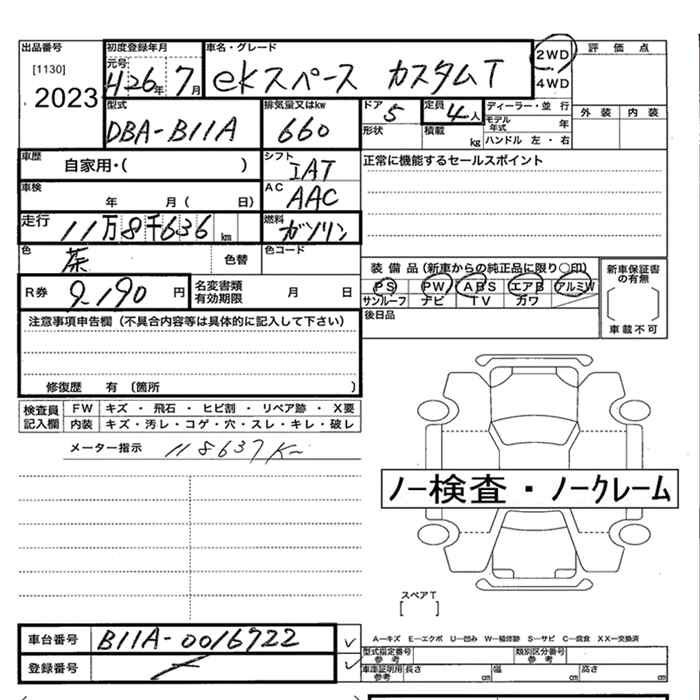 出品番号
[1130]
2023
初度登録年月
元号
H26年 7月
車名・グレード
eKスペース カスタムT
2WD
4WD
評価点
外装 内装
型式
DBA-B11A
排気量又はkw
660
ドア
5
形状
定員
4人
積載
kg
ディーラー・並 行
モデル年式 年
ハンドル 左・右
車歴
自家用・( )
シフト
IAT
正常に機能するセールスポイント
車検
年 月( 日)
AC
AAC
走行
11万8千636km
燃料
ガソリン
色
茶
色替
色コード
装備品(新車からの純正品に限り○印)
PS PW ABS エアB アルミW
サンルーフ ナビ TV カワ
新車保証書の有無
[ ]
車載不可
R券
9,190円
名変書類有効期限
月 日
後日品
注意事項申告欄(不具合内容等は具体的に記入して下さい)
修復歴 有 (箇所 )
検査員記入欄
FW キズ・飛石・ヒビ割・リペア跡・X要
内装 キズ・汚レ・コゲ・穴・スレ・キレ・破レ
メーター指示 118637K
ノー検査・ノークレーム
スペアT
[ ]
車台番号
B11A-0016922
A-キズ E-エクボ U-凹み W-補修跡 S-サビ C-腐食 XX-交換済
登録番号
型式指定番号
参考
類別区分番号
参考
車庫証明用
参考
長さ cm
幅 cm
高さ cm